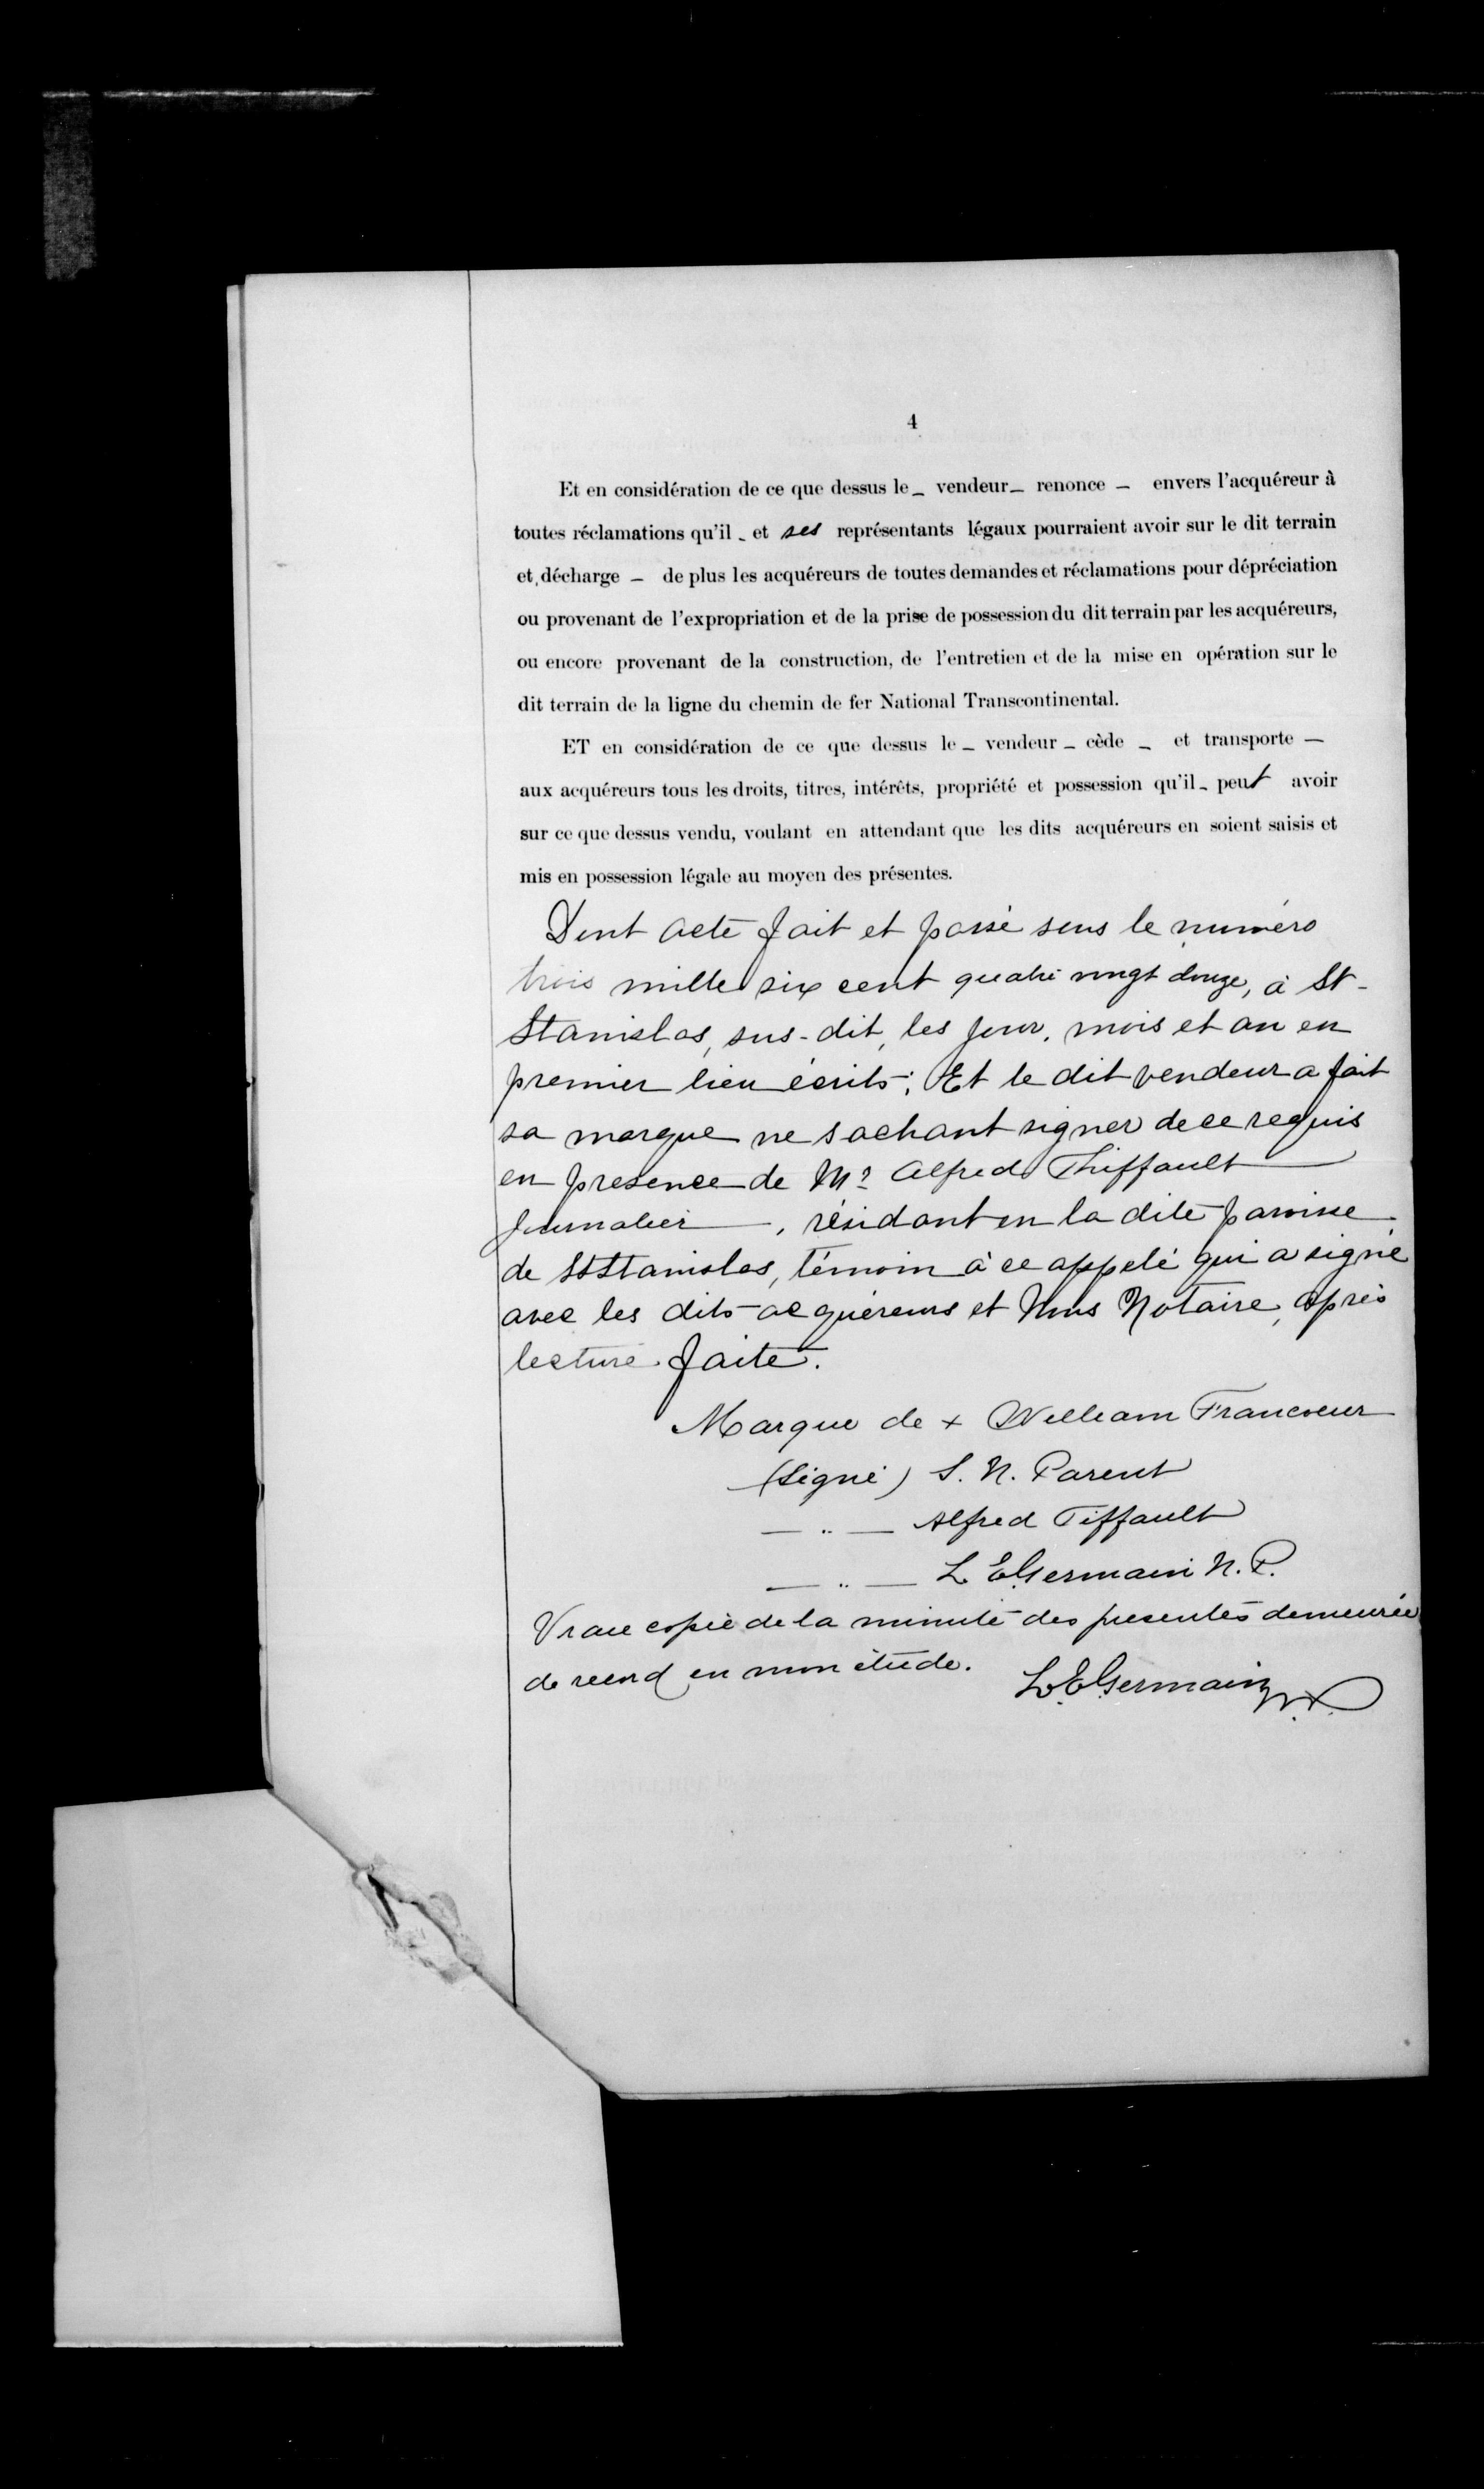 4
Et en considération de ce que dessus le _ vendeur _ renonce — envers l'acquéreur à
toutes réclamations qu'il - et ses représentants légaux pourraient avoir sur le dit terrain
et décharge — de plus les acquéreurs de toutes demandes et réclamations pour dépréciation
ou provenant de l'expropriation et de la prise de possession du dit terrain par les acquéreurs,
ou encore provenant de la construction, de l'entretien et de la mise en opération sur le
dit terrain de la ligne du chemin de fer National Transcontinental.
ET en considération de ce que dessus le _ vendeur _ cède _ et transporte —
aux acquéreurs tous les droits, titres, intérêts, propriété et possession qu'il - peut avoir
sur ce que dessus vendu, voulant en attendant que les dits acquéreurs en soient saisis et
mis en possession légale au moyen des présentes.
Dont acte fait et passé sous le numéro
trois mille six cent quatre vingt douze, à St-
Stanislas, sus-dit, les jour, mois et an en
premier lieu écrits; Et le dit vendeur a fait
sa marque ne sachant signer de ce requis
en presence de Mr Alfred Thiffault
Journalier —, résidant en la dite paroisse
de St Stanislas, témoin à ce appelé qui a signé
avec les dits acquéreurs et Nous Notaire, après
lecture faite.
Marque de + William Francoeur
(Signé) S. N. Parent
— .. — Alfred Tiffault
— .. — L. E. Germain N. P.
Vraie copie de la minute des presentes demeurée
de record en mon étude. L. E. Germain N.P.